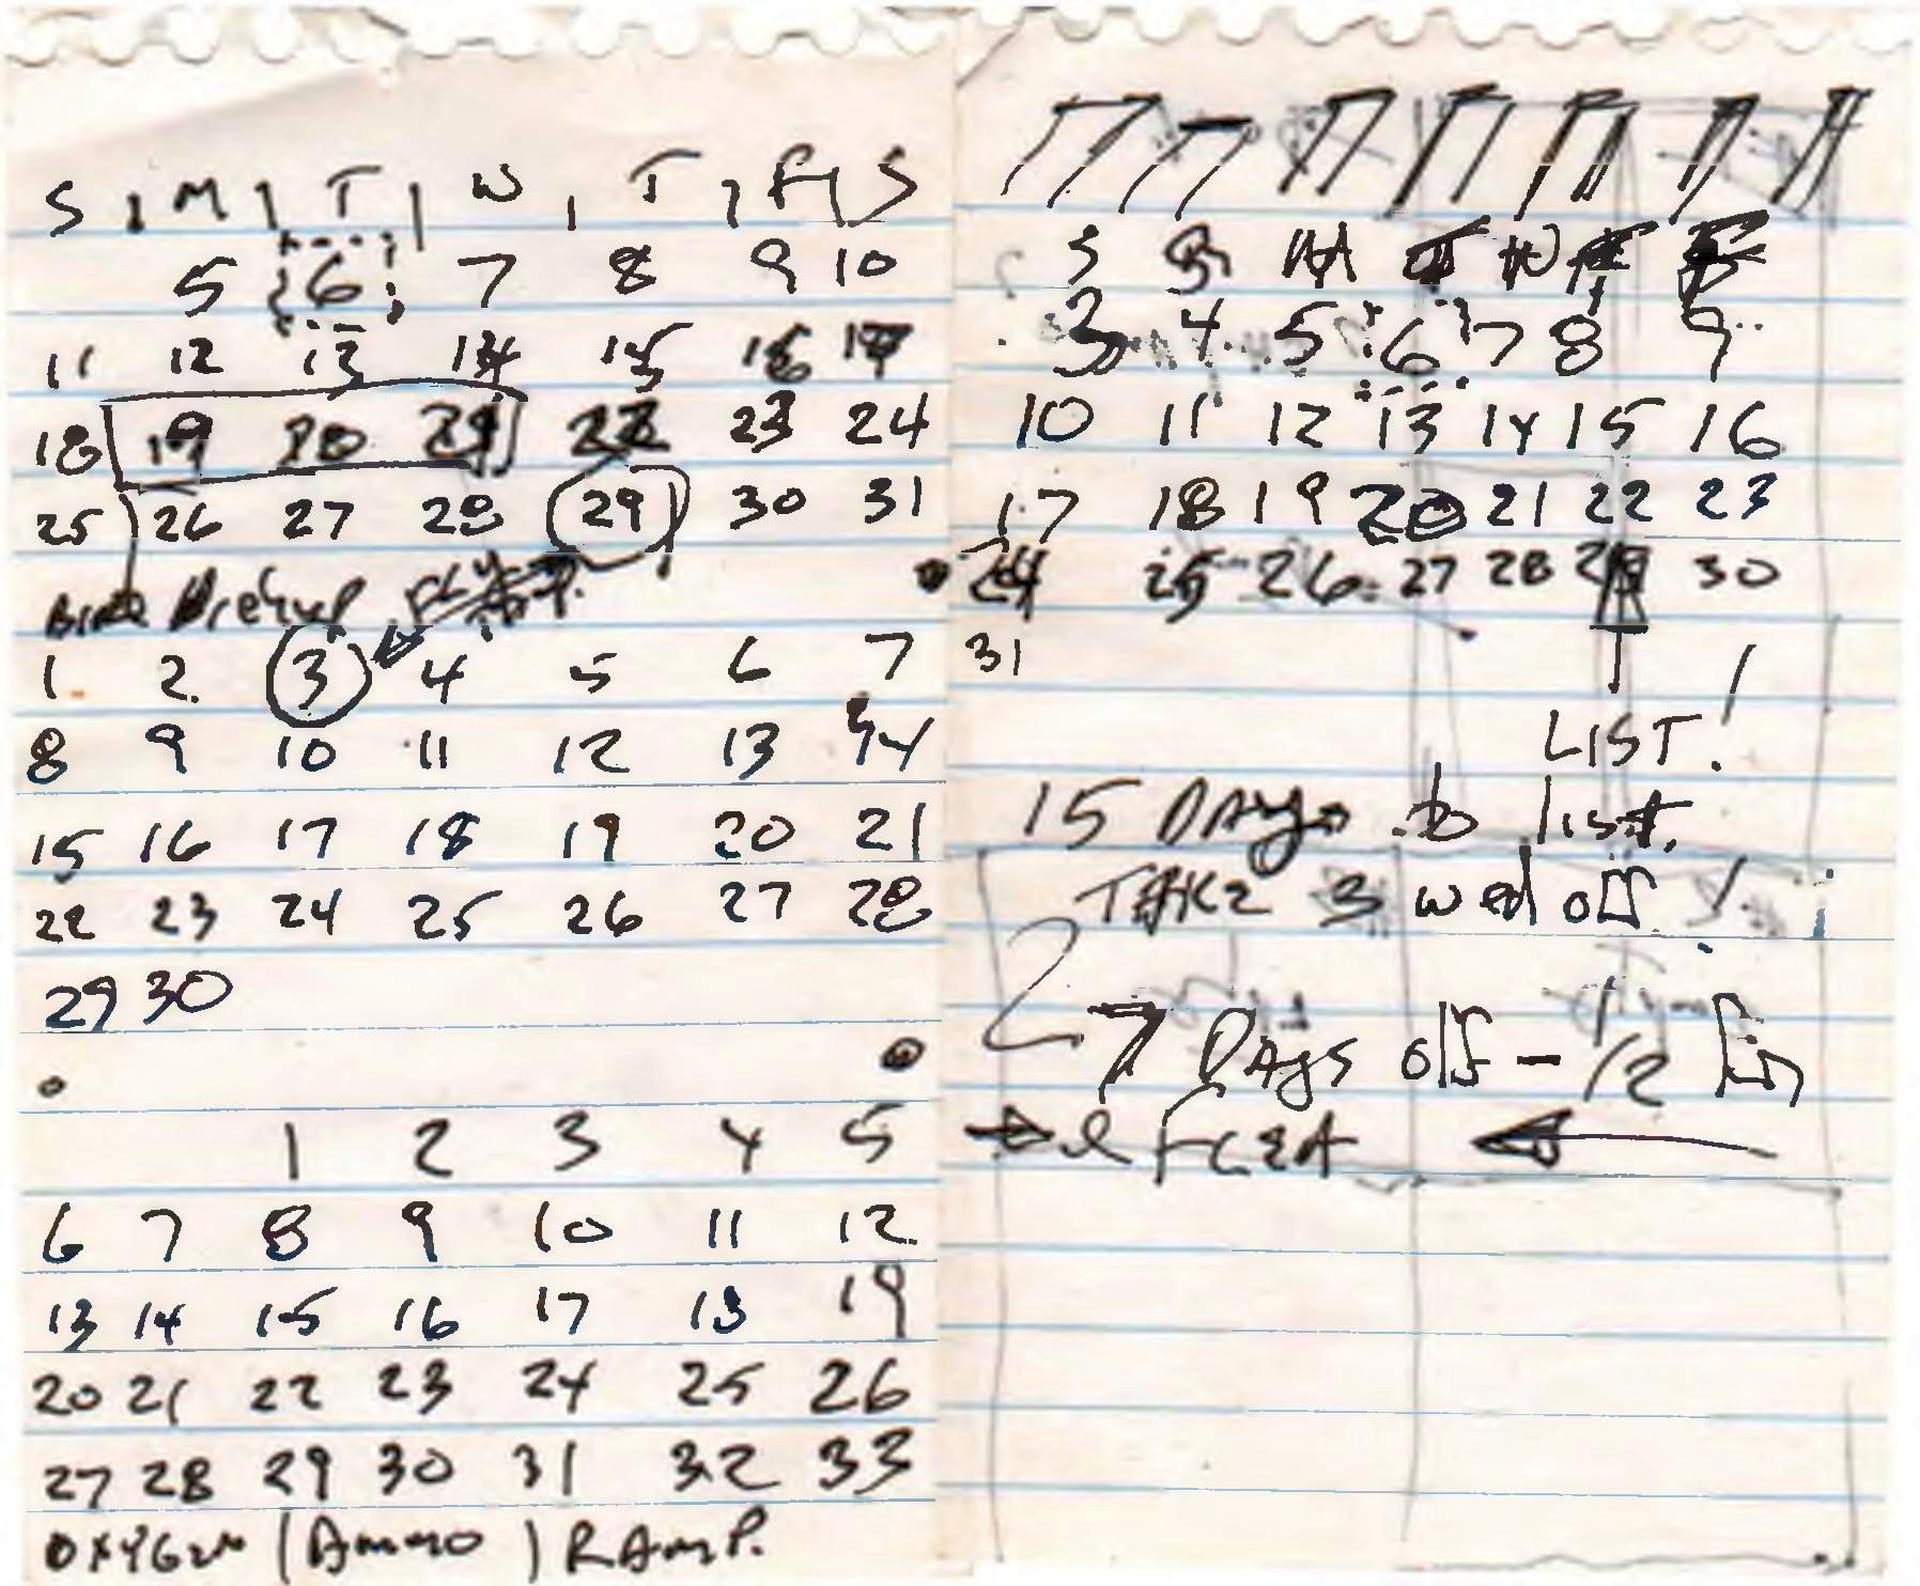 S M T W T F S
5 6 7 8 9 10
11 12 13 14 15 16 17
18 19 20 21 22 23 24
25 26 27 28 29 30 31
1 2 3 4 5 6 7
8 9 10 11 12 13 14
15 16 17 18 19 20 21
22 23 24 25 26 27 28
29 30
1 2 3 4 5
6 7 8 9 10 11 12
13 14 15 16 17 18 19
20 21 22 23 24 25 26
27 28 29 30 31 32 33
OXYGEN | AMMO | RAMP.
3 4 5 6 7 8 9
10 11 12 13 14 15 16
17 18 19 20 21 22 23
24 25 26 27 28 29 30
31
LIST!
15 DAYS to list.
TAKE 3 wed off!
7 DAYS off - 12